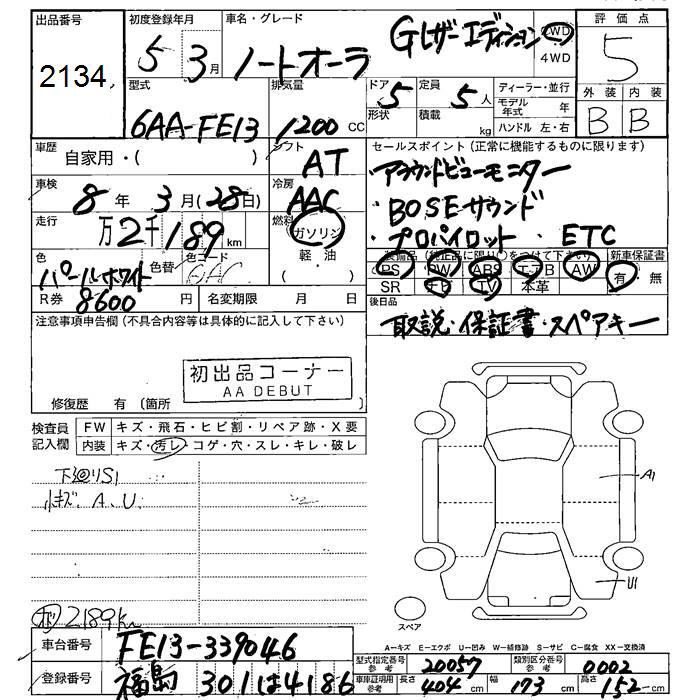 出品番号
2134
初度登録年月
5 3月
車名・グレード
ノートオーラ Gレザーエディション
2WD
4WD
評価点
5
型式
6AA-FE13
排気量
1200 CC
ドア
5
形状
定員
5人
積載 kg
ディーラー・並行
モデル年式 年
ハンドル 左・右
外装 内装
B B
車歴
自家用・( )
シフト
AT
セールスポイント(正常に機能するものに限ります)
・アラウンドビューモニター
・BOSEサウンド
・プロパイロット・ETC
車検
8年 3月(28日)
冷房
AAC
走行
万2千189km
燃料
ガソリン
軽・油
色
パールホワイト
色替
色コード
QAC
R券 8600円
名変期限 月 日
装備品(純正品に限り○をつけて下さい)
PS PW ABS エアB AW
SR ナビ TV 本革
新車保証書
有 無
後日品
取説・保証書・スペアキー
注意事項申告欄(不具合内容等は具体的に記入して下さい)
初出品コーナー
AA DEBUT
修復歴 有〔箇所
検査員記入欄
FW キズ・飛石・ヒビ割・リペア跡・X要
内装 キズ・汚レ・コゲ・穴・スレ・キレ・破レ
下廻りS1
小キズ A.U.
2189km
A1
U1
スペア
A―キズ E―エクボ U―凹み W―補修跡 S―サビ C―腐食 XX―交換済
車台番号
FE13-339046
型式指定番号 参考
20057
類別区分番号 参考
0002
登録番号
福島 301は4186
車庫証明用 参考
長さ 404 cm
幅 173 cm
高さ 152 cm